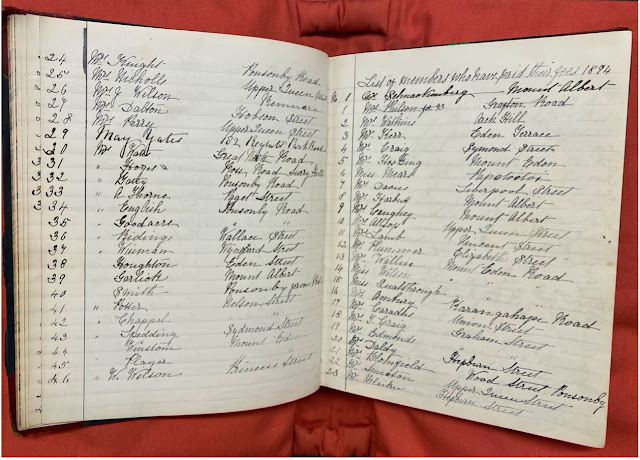 24 Mr. Knight Ponsonby Road
25 Mrs. Nicholls Upper Queen Street
26 Mr. J. Wilson Remuera
27 Mrs. Dalton Hobson Street
28 Mr. Kerry Upper Queen Street
29 May Yates 132 Regents Park Road
30 Mr Yates Great North Road
31 " Ross Road Surry Hills
32 " Batty Ponsonby Road
33 " A Thorne Paget Street
34 " English Ponsonby Road
35 " Goodacre "
36 " Riding Wallace Street
37 " Wynyard Street
38 " Eden Street
39 " Garlick Mount Albert
40 " Smith Ponsonby
41 " Potter Nelson Street
42 " Chappel
43 " Spedding Sydmond Street
44 " Winstone Mount Eden
45 " Player
46 " W. Wilson Princess Street
List of members who have paid their fees 1894
No 1 Mr Schnackenberg Mount Albert
" 2 Mr Grafton Road
2 Mr Watkins Arch Hill
3 Mr Kerr Eden Terrace
4 Mr. Craig Symond Street
5 Mr. Mount Eden
6 Miss
7 Mr Davis Liverpool Street
8 Mr Mount Albert
9 Mr. Caughey Mount Albert
10 Mr Upper Queen Street
11 Mr Lamb Vincent Street
12 Mr Plummer Elizabeth Street
13 Mr Wallace Mount Eden Road
14 Miss Wilson "
15 Miss "
16 Mr Ambury Karangahape Road
17 Mr Union Street
18 Mr Craig Graham Street
19 Mr Edmonds
20 Mr Daldy Hepburn Street
21 Mr Wood Street Ponsonby
22 Mr Smeeton Upper Queen Street
23 Mr Clarke Hepburn Street